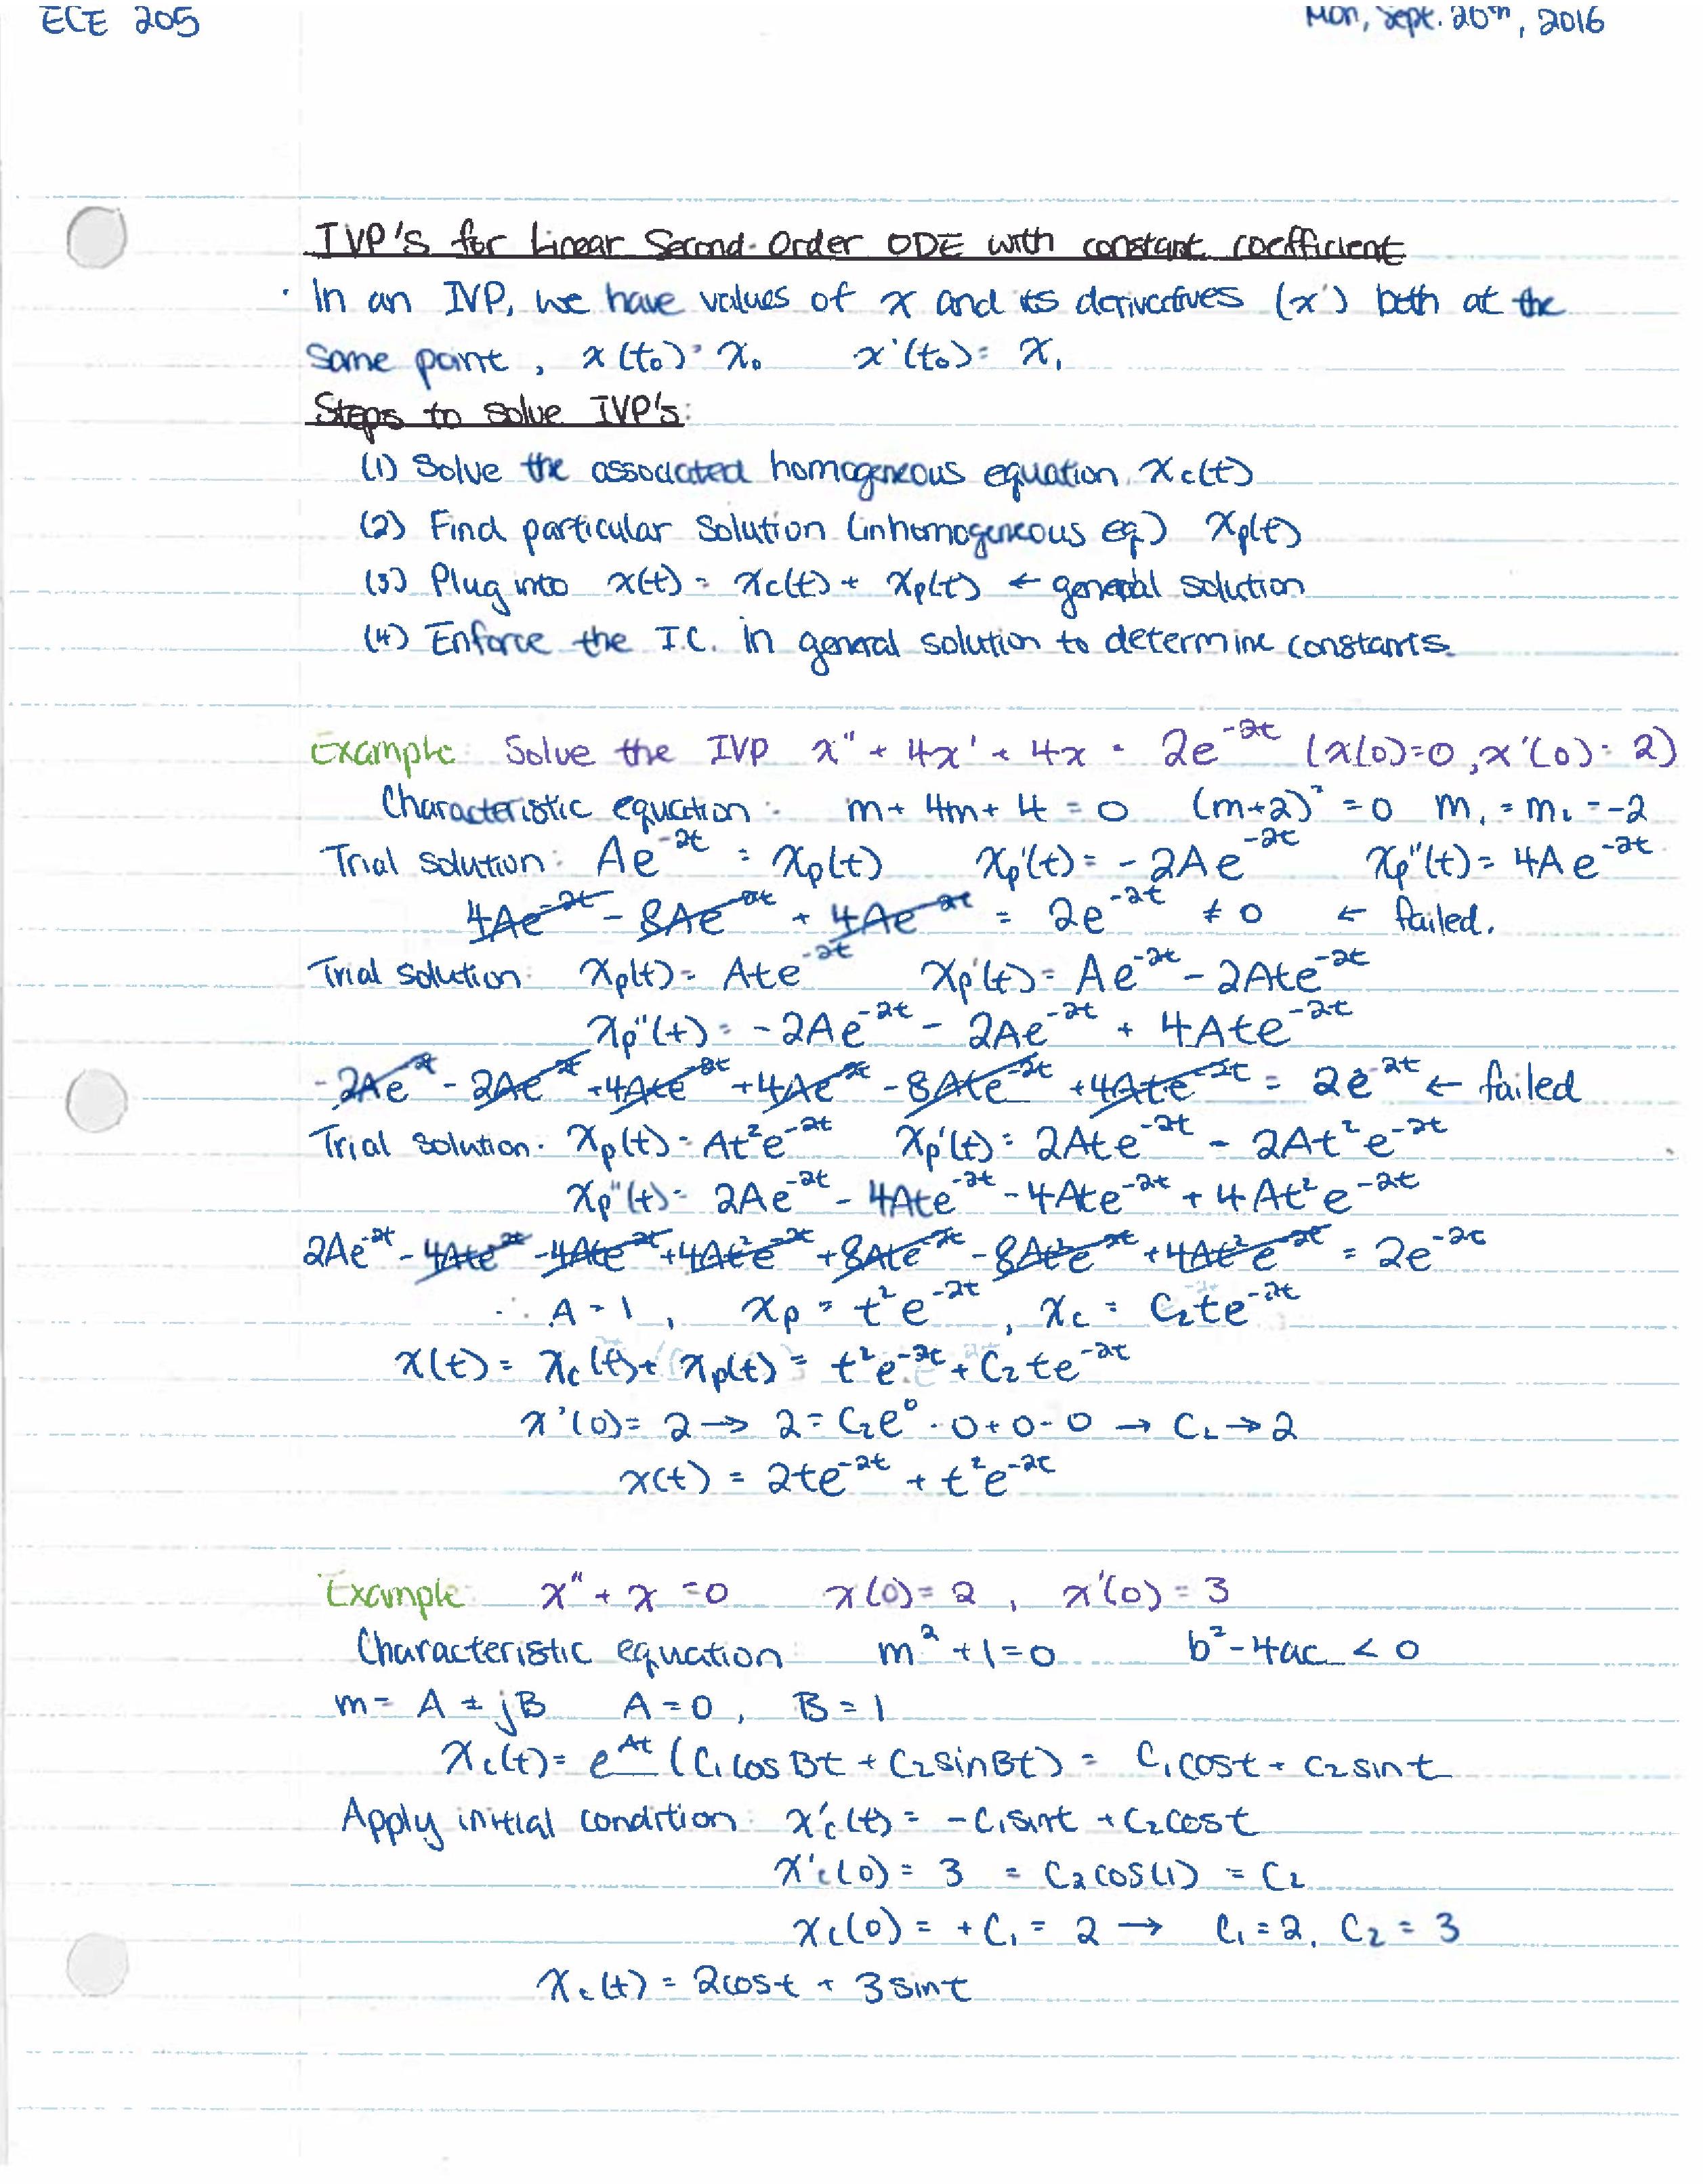 ECE 205
Mon, Sept. 26th, 2016
IVP's for Linear Second-Order ODE with constant coefficient
· In an IVP, we have values of x and its derivatives (x') both at the
same point, x(t₀) = x₀ x'(t₀) = x₁
Steps to solve IVP's:
(1) Solve the associated homogeneous equation xc(t)
(2) Find particular solution (inhomogeneous eq.) xp(t)
(3) Plug into x(t) = xc(t) + xp(t) ← general solution
(4) Enforce the I.C. in general solution to determine constants.
Example: Solve the IVP x'' + 4x' + 4x = 2e^-2t (x(0)=0, x'(0) = 2)
Characteristic equation: m + 4m + 4 = 0 (m+2)² = 0 m₁ = m₂ = -2
Trial solution: Ae^-2t = xp(t) xp'(t) = -2Ae^-2t xp''(t) = 4Ae^-2t
4Ae^-2t - 8Ae^-2t + 4Ae^-2t = 2e^-2t ≠ 0 ← failed.
Trial solution: xp(t) = Ate^-2t xp'(t) = Ae^-2t - 2Ate^-2t
xp''(t) = -2Ae^-2t - 2Ae^-2t + 4Ate^-2t
-2Ae^-2t - 2Ae^-2t + 4Ate^-2t + 4Ae^-2t - 8Ate^-2t + 4Ate^-2t = 2e^-2t ← failed
Trial solution: xp(t) = At²e^-2t xp'(t) = 2Ate^-2t - 2At²e^-2t
xp''(t) = 2Ae^-2t - 4Ate^-2t - 4Ate^-2t + 4At²e^-2t
2Ae^-2t - 4Ate^-2t - 4Ate^-2t + 4At²e^-2t + 8Ate^-2t - 8At²e^-2t + 4At²e^-2t = 2e^-2t
∴ A = 1, xp = t²e^-2t, xc = C₂te^-2t
x(t) = xc(t) + xp(t) = t²e^-2t + C₂te^-2t
x'(0) = 2 → 2 = C₂e⁰ - 0 + 0 - 0 → C₂ → 2
x(t) = 2te^-2t + t²e^-2t
Example: x'' + x = 0 x(0) = 2, x'(0) = 3
Characteristic equation: m² + 1 = 0 b² - 4ac < 0
m = A ± jB A = 0, B = 1
xc(t) = e^At (C₁cosBt + C₂sinBt) = C₁cost + C₂sint
Apply initial condition: x'c(t) = -C₁sint + C₂cost
x'c(0) = 3 = C₂cos(1) = C₂
xc(0) = +C₁ = 2 → C₁ = 2, C₂ = 3
xc(t) = 2cost + 3sint